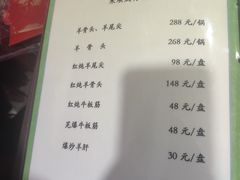 羊骨头、羊尾尖 288 元/锅
羊 骨 头 268 元/锅
红炖羊尾尖 98 元/盘
红炖羊骨头 148 元/盘
红炖牛板筋 48 元/盘
芫爆牛板筋 48 元/盘
爆炒羊肝 30 元/盘